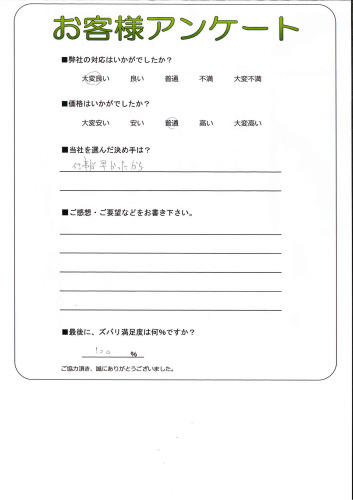 お客様アンケート
■弊社の対応はいかがでしたか？
大変良い 良い 普通 不満 大変不満
■価格はいかがでしたか？
大変安い 安い 普通 高い 大変高い
■当社を選んだ決め手は？
仕事が早かったから
■ご感想・ご要望などをお書き下さい。
■最後に、ズバリ満足度は何%ですか？
100 %
ご協力頂き、誠にありがとうございました。